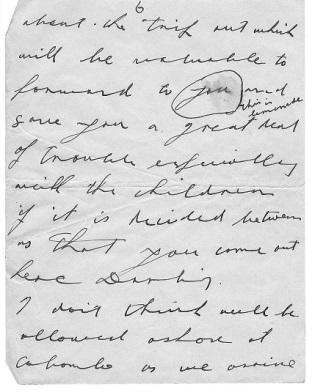 6
about the trip out which
will be valuable to
forward to you and
this is
lemonade
save you a great deal
of trouble especially
with the children
if it is decided between
us that you come out
here Darling.
I don't think we'll be
allowed ashore at
Colombo as we arrive